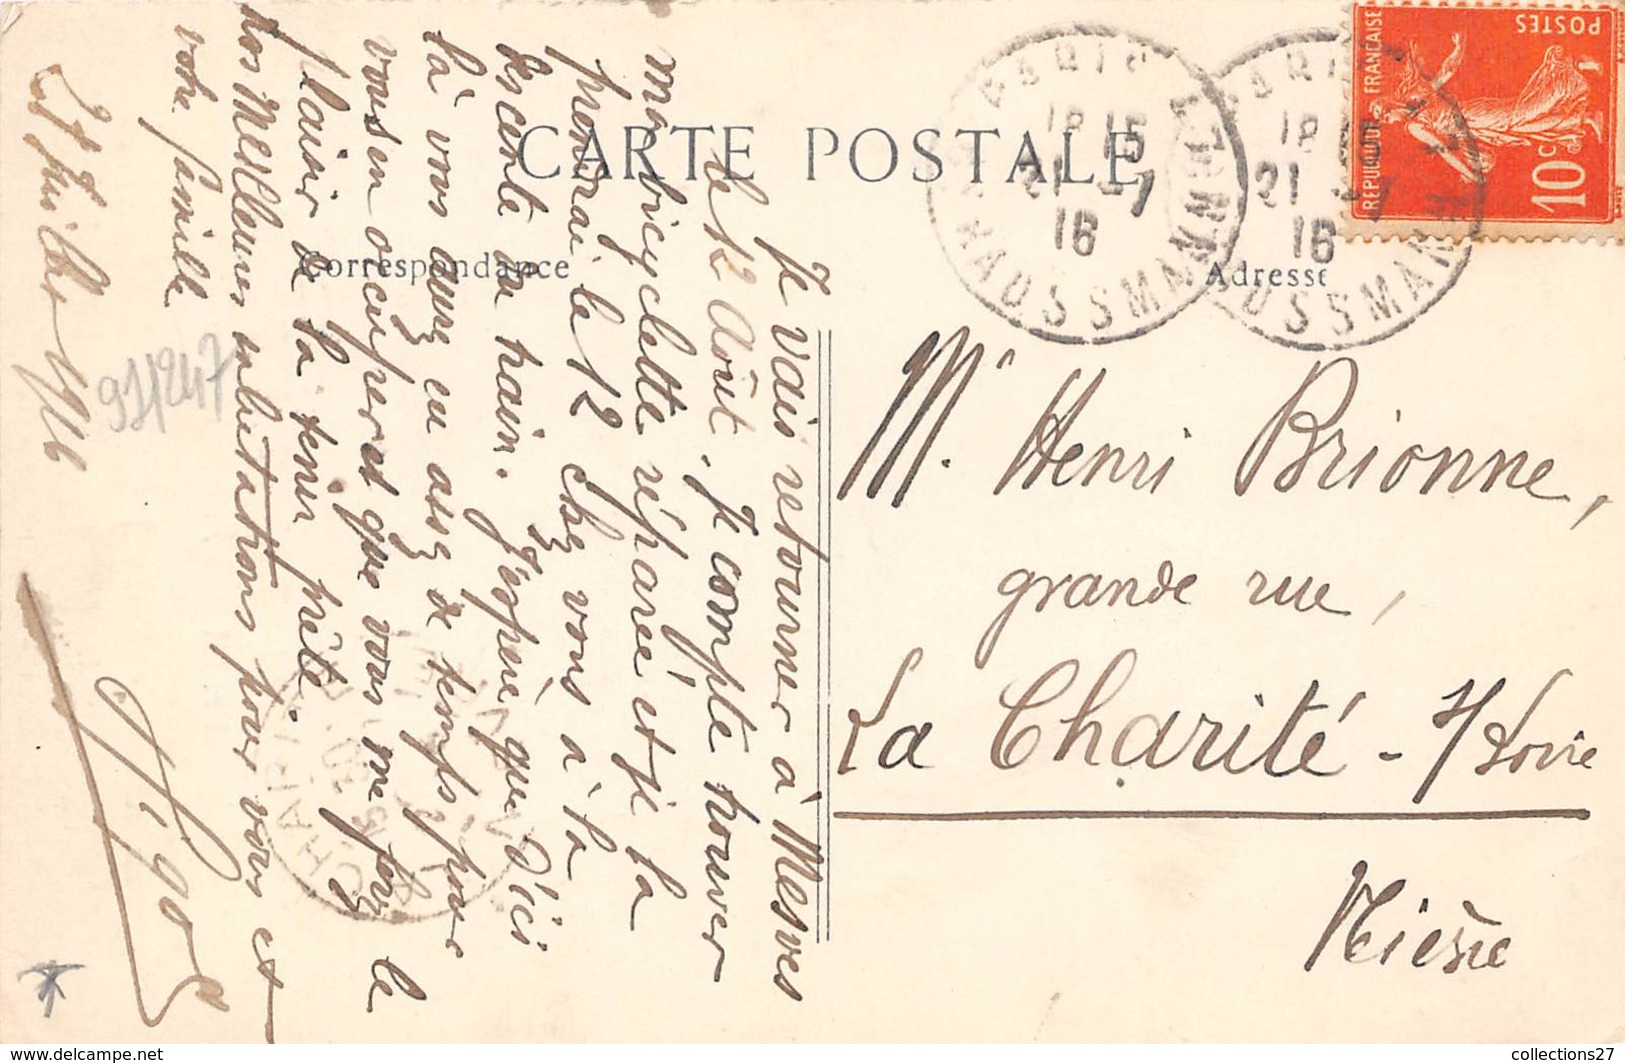 CARTE POSTALE
Correspondance
Adresse
REPUBLIQUE FRANÇAISE
POSTES
10c
PARIS
18 15
21 - 7
16
HAUSSMANN
PARIS
18 15
21 - 7
16
HAUSSMANN
Mr Henri Brionne,
grande rue,
La Charité - s/ Loire
Nièvre
Je vais retourner à Mesves
le 12 Août. Je compte trouver
ma bicyclette réparée et je la
prendrai le 12 chez vous à la
descente du train. J'espère que d'ici
là vous aurez eu assez de temps pour
vous en occuper et que vous me ferez le
plaisir de la tenir prête.
Mes meilleures salutations pour vous et
votre famille
21 Juillet 1916
931247
www.delcampe.net
collections27